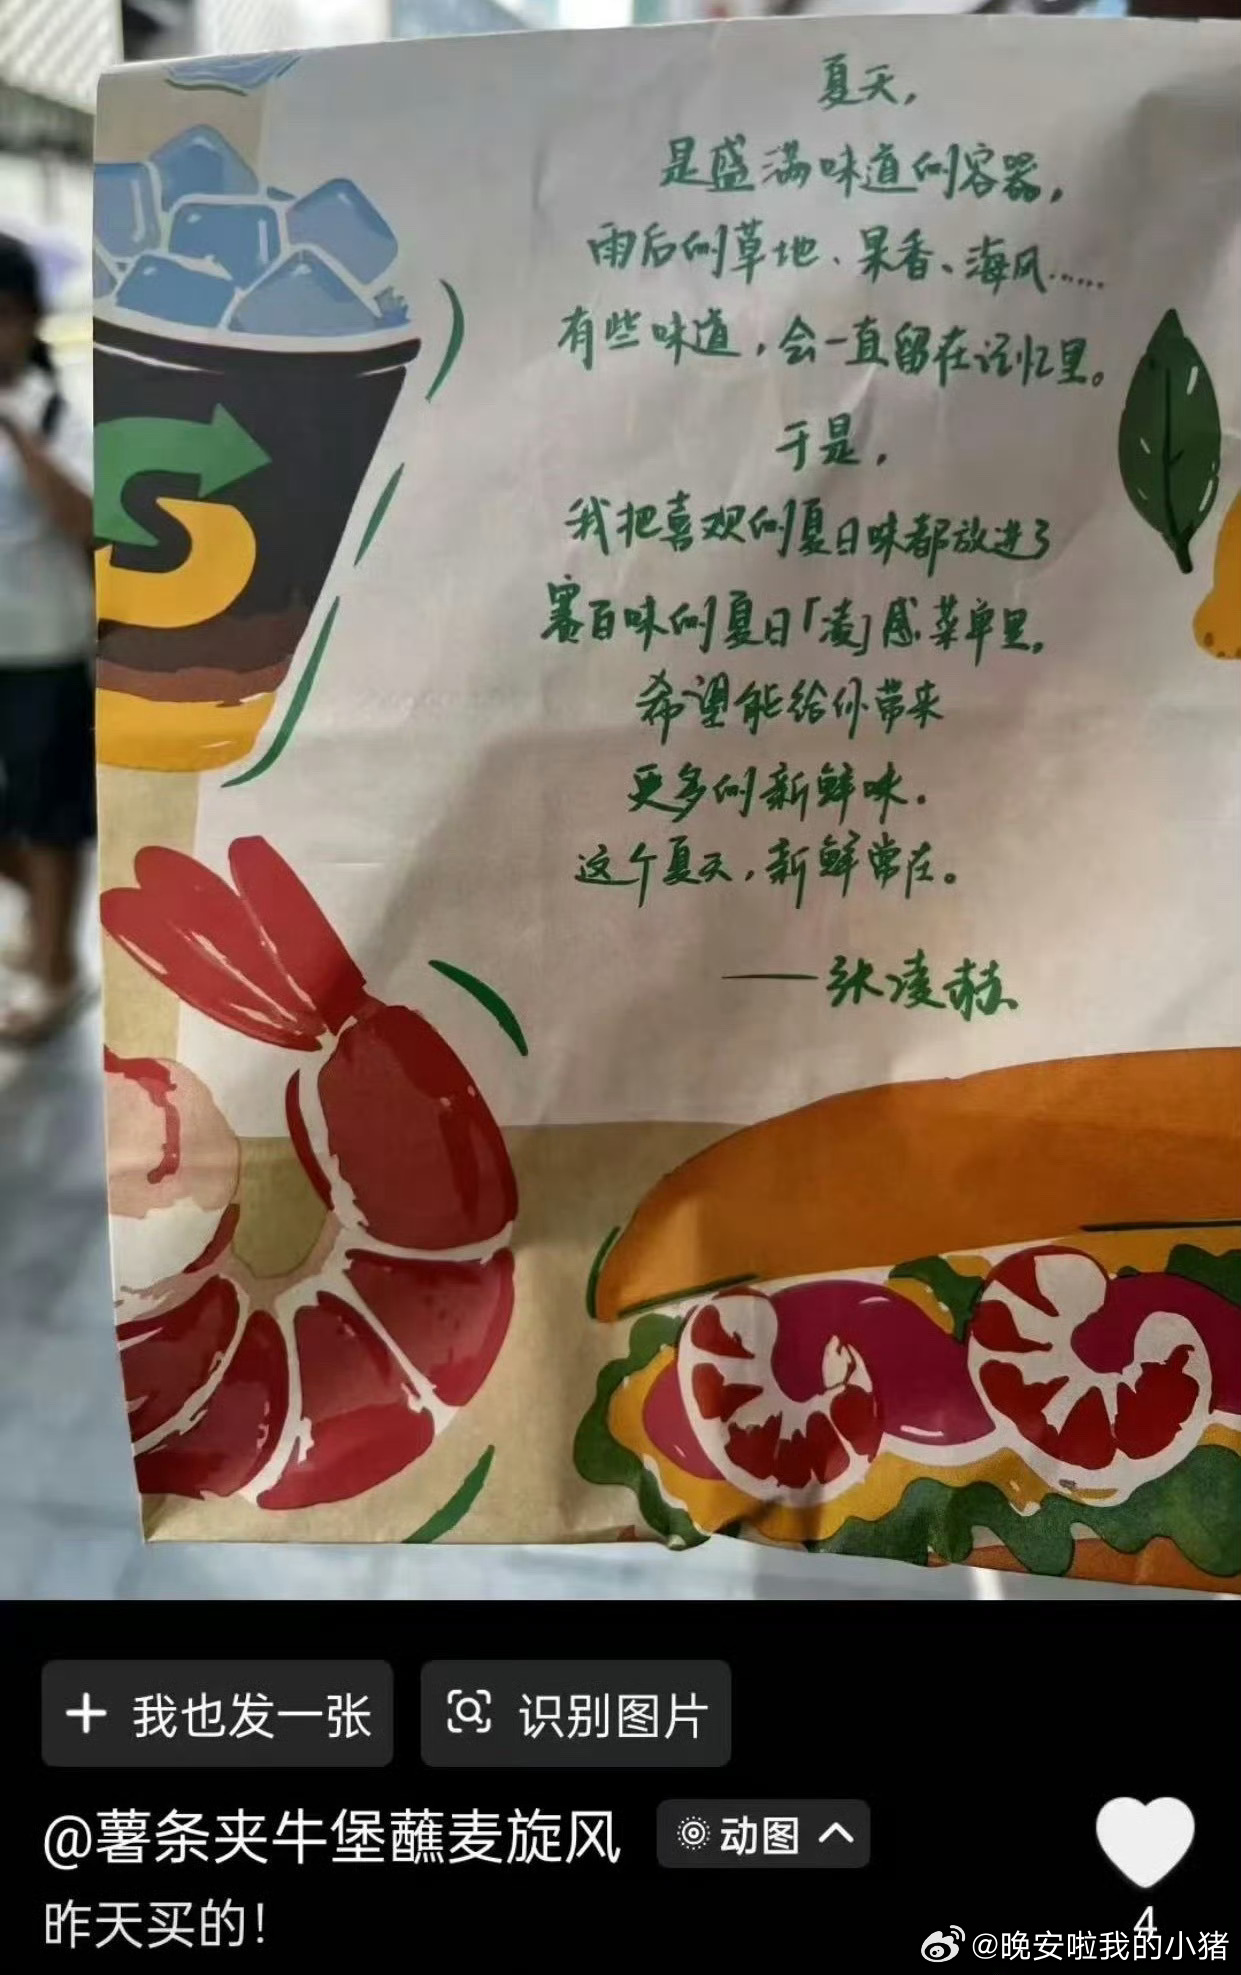 夏天，
是盛满味道的容器，
雨后的草地、果香、海风……
有些味道，会一直留在记忆里。
于是，
我把喜欢的夏日味都放进了
赛百味的夏日「凌」感菜单里，
希望能给你带来
更多的新鲜味．
这个夏天，新鲜常在。
——张凌赫
S
+ 我也发一张
识别图片
@薯条夹牛堡蘸麦旋风
动图
昨天买的！
4
@晚安啦我的小猪